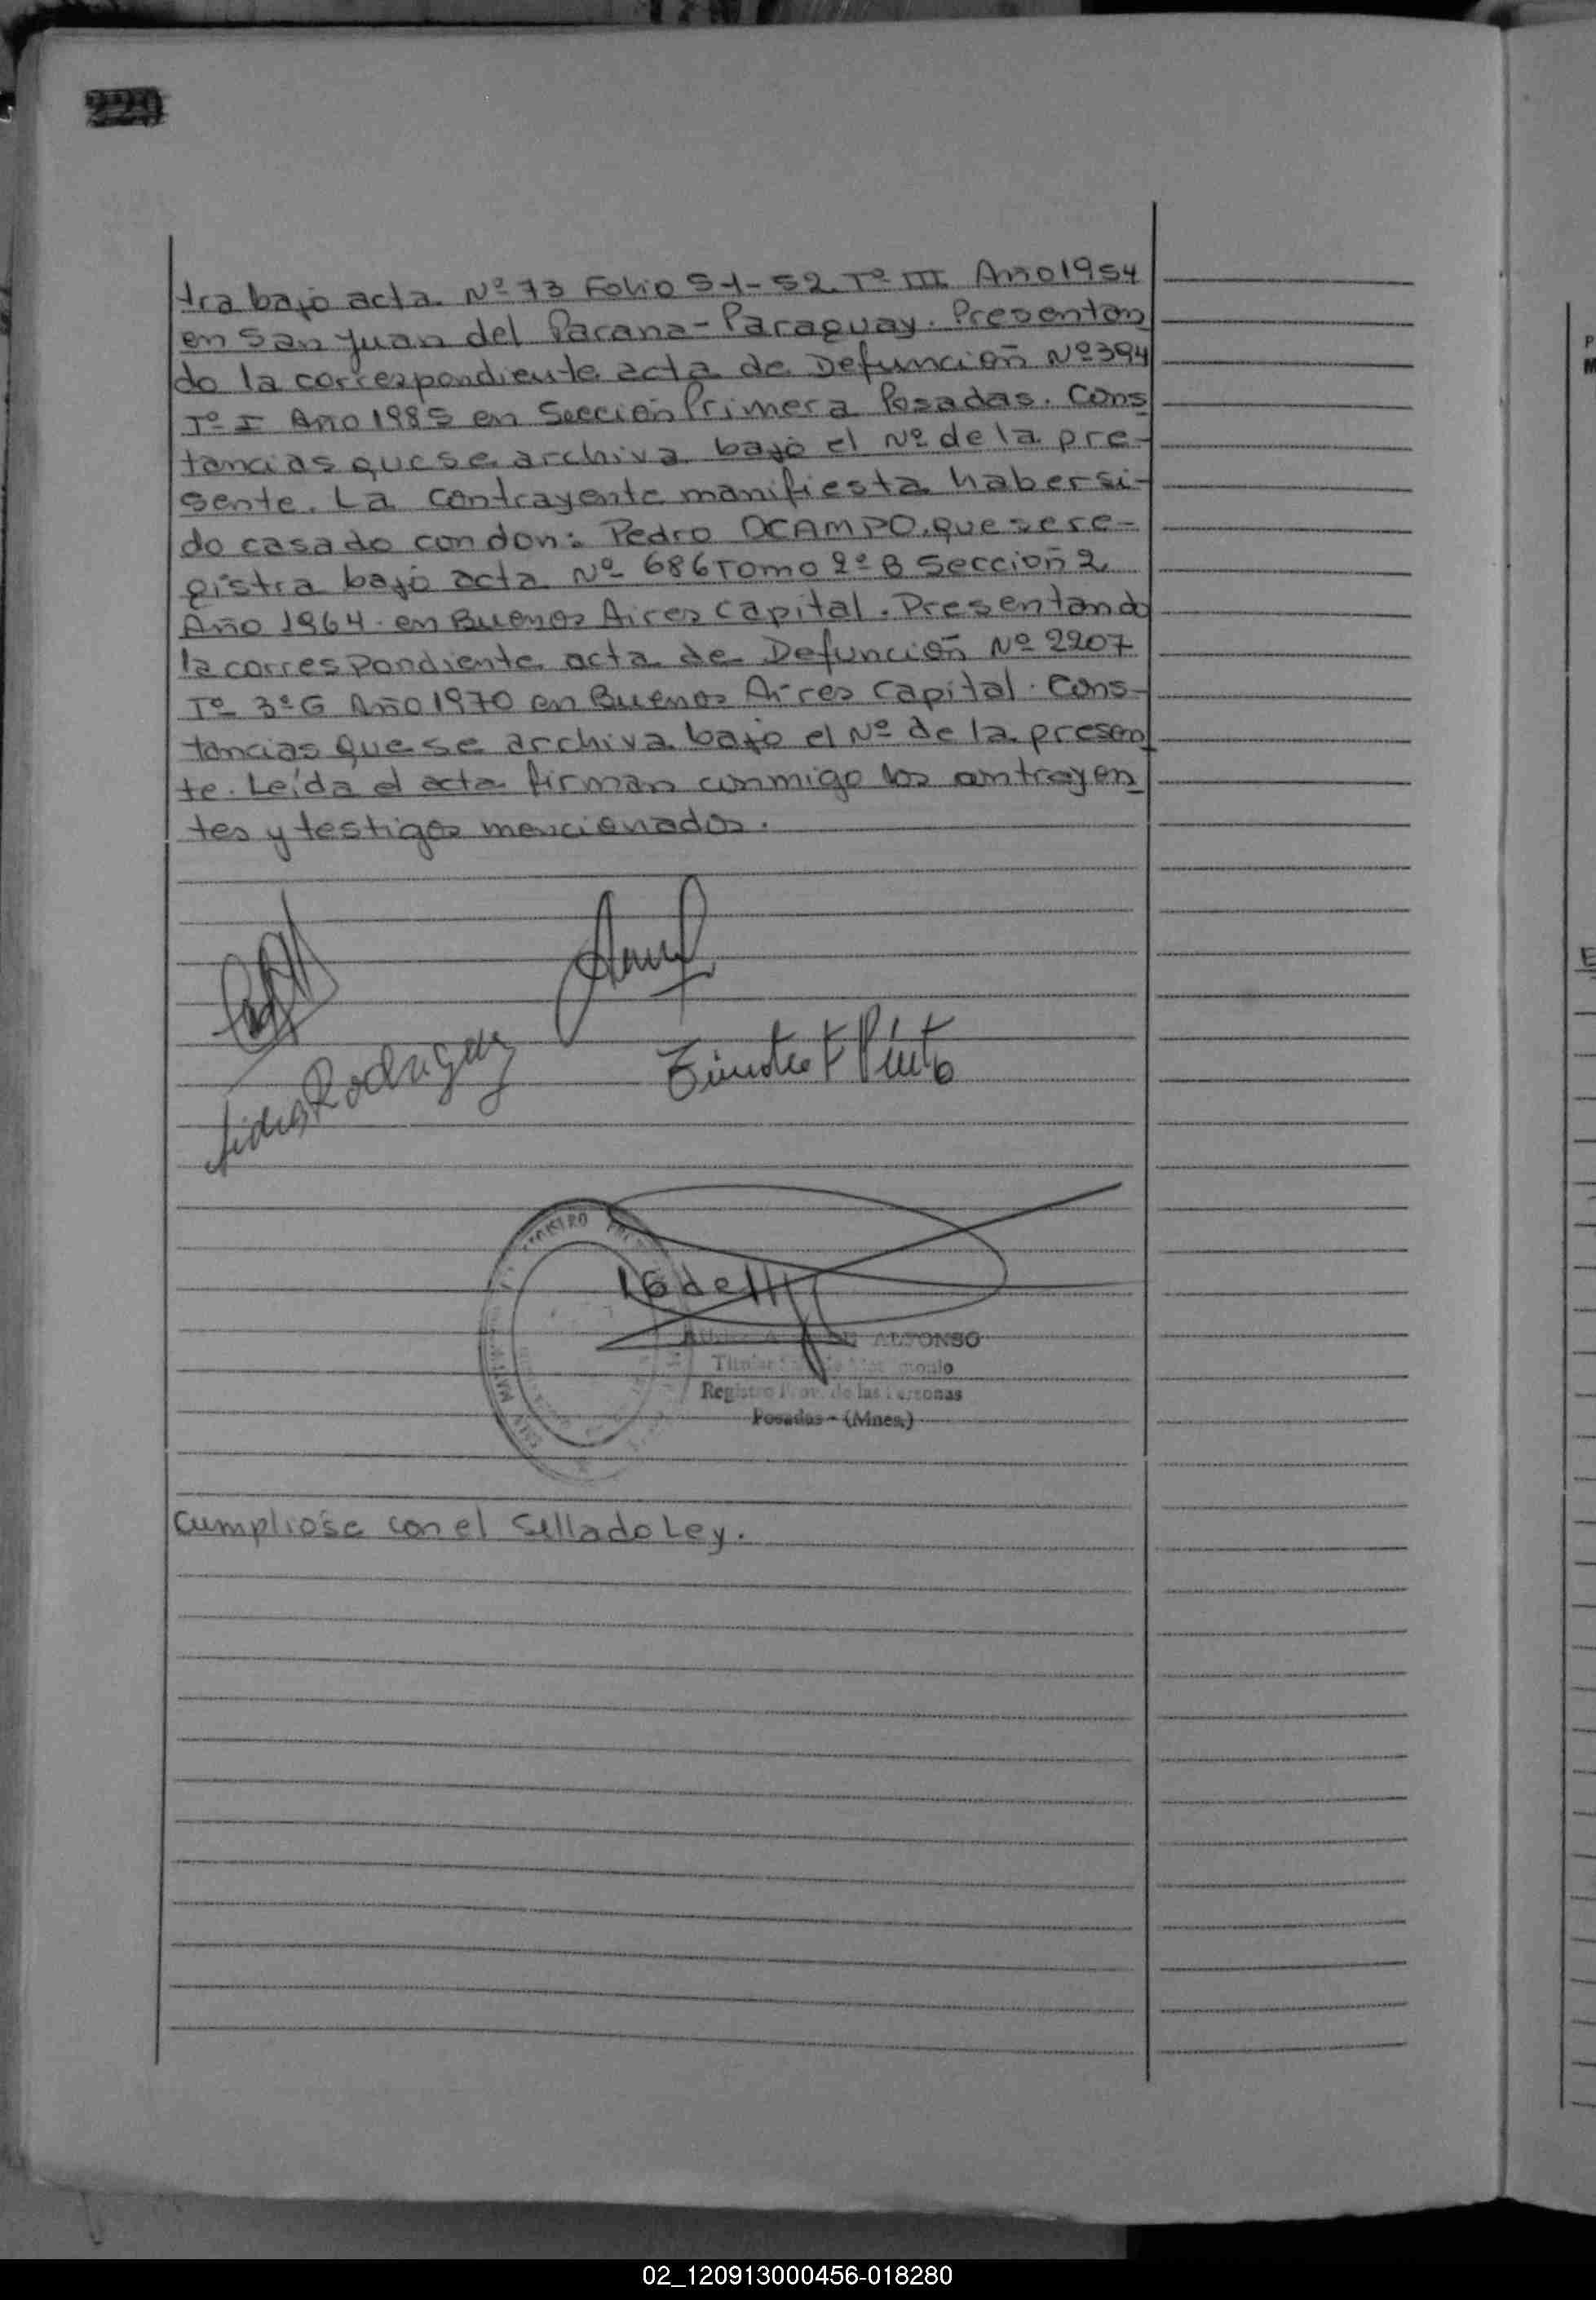 229
tra bajo acta Nº 73 Folio 51-52 Tº III Año 1954
en San Juan del Parana-Paraguay. Presentan
do la correspondiente acta de Defunción Nº 394
Tº I Año 1985 en Sección Primera Posadas. Cons
tancias que se archiva bajo el Nº de la pre-
sente. La contrayente manifiesta haber si-
do casado con don: Pedro OCAMPO, que se re-
gistra bajo acta Nº 686 Tomo 2º B Sección 2
Año 1964 en Buenos Aires Capital. Presentando
la correspondiente acta de Defunción Nº 2207
Tº 3º G Año 1970 en Buenos Aires Capital. Cons-
tancias que se archiva bajo el Nº de la presen
te. Leída el acta firman conmigo los contrayen
tes y testigos mencionados.
Rodriguez
Pinto
16 de
ALFONSO
Registro Prov. de las Personas
Posadas - (Mnes.)
Cumpliose con el Sellado Ley.
02_120913000456-018280